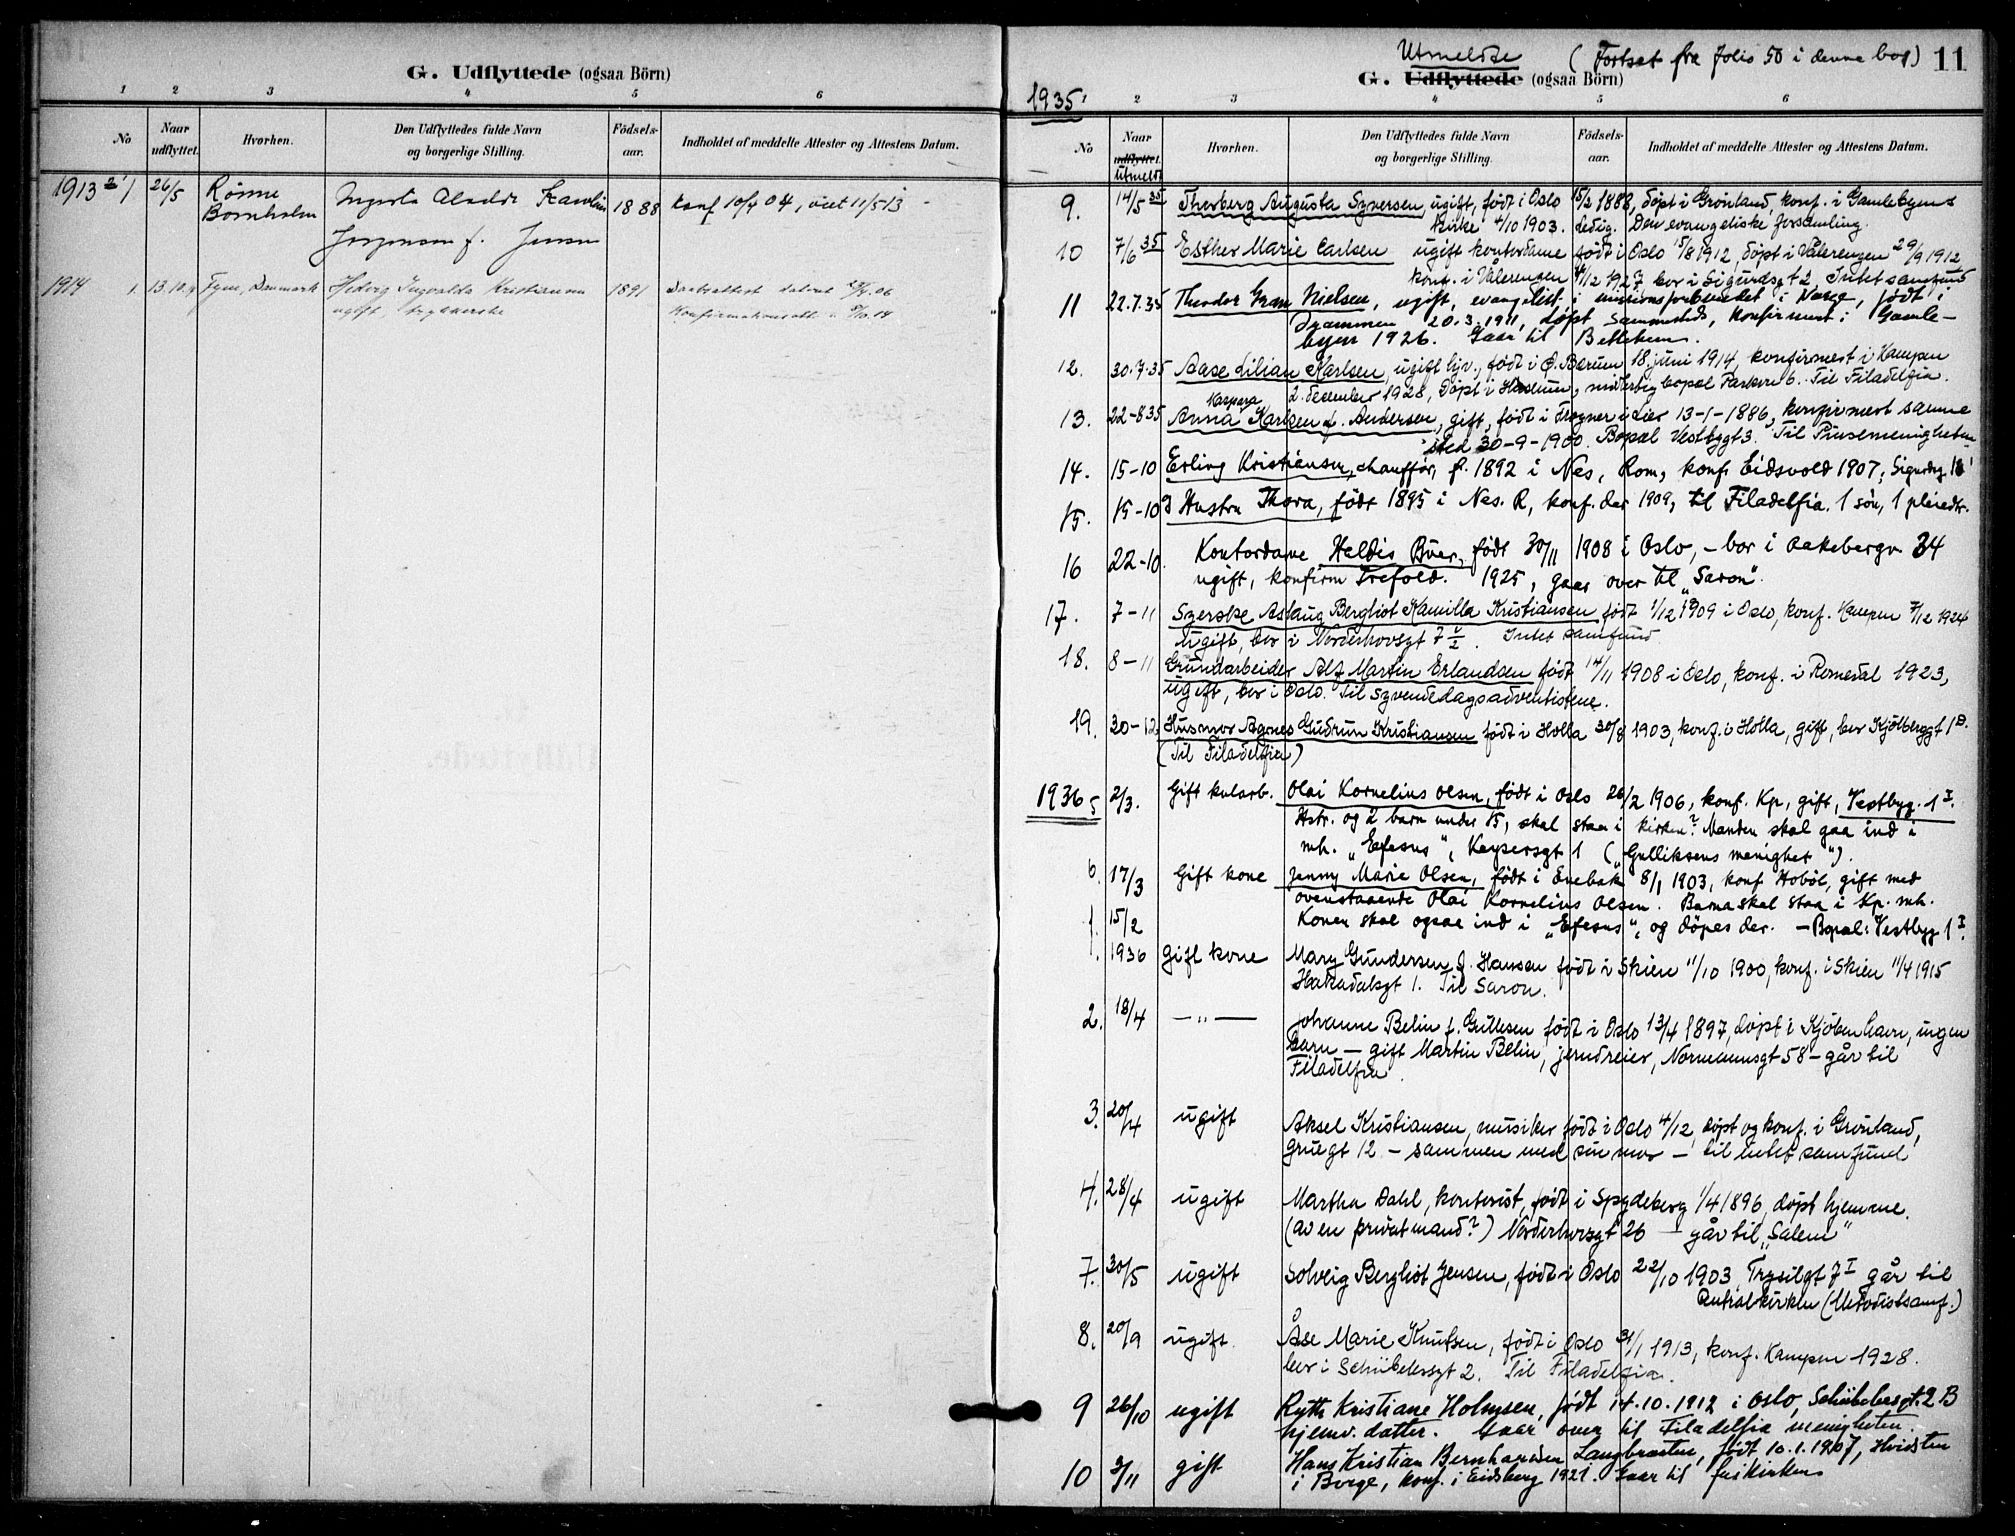 G. Udflyttede (ogsaa Börn)
1 2 3 4 5 6
No Naar udflyttet. Hvorhen. Den Udflyttedes fulde Navn og borgerlige Stilling. Födsels-aar. Indholdet af meddelte Attester og Attestens Datum.
1913 1 26/5 Rönne 1888 Konf 10/4 04, viet 11/5 13
Bornholm
Jörgensen f. Jensen
1914 1. 13.10.14 Fyen, Danmark Hedvig Ingvalda Kristiansen 1891
ugift,
Utmeldte (Fortsat fra folio 50 i denne bog) 11
G. Udflyttede (ogsaa Börn)
1935 1 2 3 4 5 6
No Naar udflyttet. utmeldt Hvorhen. Den Udflyttedes fulde Navn og borgerlige Stilling. Födsels-aar. Indholdet af meddelte Attester og Attestens Datum.
9. 14/5 35 Thorberg Augusta Syversen, ugift, født i Oslo 15/2 1888, døpt i Grønland, konf. i Gamlebyens
kirke 4/10 1903. Ledig. Den evangeliske forsamling.
10 7/6 35 Esther Marie Carlsen ugift kontordame født i Oslo 15/8 1912, døpt i Vålerengen 29/9 1912
konf. i Vålerengen 4/12 1927, bor i Sigurdsgt 2, Intet samfund
11 22.7.35 Theodor Gran Nielsen, ugift, evangelist i missionsforbundet i Norge, født i
Drammen 20.3.1911, døpt sammesteds, konfirmert i Gamle-
byen 1926. Gaar til Betlehem.
12. 30.7.35 Aase Lilian Karlsen, ugift hjv., født i Ø. Bærum 18 juni 1914, konfirmert i Kampen
2. december 1928, Døpt i Haslum, midlertidig bopæl Parkvn 6. Til Filadelfia.
Kaspara
13. 22-8 35 Anna Karlsen f. Andersen, gift, født i Frogner i Lier 13-1-1886, konfirmert samme
sted 30-9-1900. Bopæl Vestbygt 3. Til Pinsemenigheten
14. 15-10 Erling Kristiansen, chauffør, f. 1892 i Nes, Rom, konf. Eidsvold 1907,
15. 15-10 Hustru Thora, født 1895 i Nes. R, konf. der 1909, til Filadelfia. 1 søn, 1 pleiedtr.
16 22-10. Kontordame Haldis Buer, født 30/11 1908 i Oslo, – bor i Aakebergv. 34
ugift, konfirm Trefold. 1925, gaar over til "Saron".
17. 7-11 Syerske Aslaug Bergliot Kamilla Kristiansen født 1/12 1909 i Oslo, konf. Kampen 7/12 1924
ugift, bor i Norderhovsgt 7 1/2. Intet samfund
18. 8-11 Grundarbeider Alf Martin Erlandsen født 14/11 1908 i Oslo, konf. i Romedal 1923,
ugift, bor i Oslo. Til syvendedagsadventistene.
19. 30-12 Husmor Agnes Gudrun Kristiansen født i Holla 30/8 1903, konf. i Holla, gift, bor Kjølberggt 1B.
(Til Filadelfia)
1936 5 2/3. Gift kularb. Olai Kornelius Olsen, født i Oslo 26/2 1906, konf. Kp, gift, Vestbyg. 1 I.
Hstr. og 2 barn under 15, skal staa i kirken? Manden skal gaa ind i
mh. "Efesus", Keysersgt 1 ("Gulliksens menighet").
6. 17/3 Gift kone Jenny Marie Olsen, født i Enebak 8/1 1903, konf Hobøl, gift med
ovenstaaende Olai Kornelius Olsen. Barna skal staa i Kp. mh.
Konen skal ogsaa ind i "Efesus", og døpes der. – Bopæl: Vestbyg 1 I.
1. 15/2
1936 gift kone Mary Gundersen f. Hansen født i Skien 11/10 1900, konf. i Skien 11/4 1915
Hakadalsgt 1. Til Saron.
2. 18/4 — " — Johanne Belin f. født i Oslo 13/4 1897, døpt i Kjøbenhavn, ingen
barn – gift Martin Belin, jerndreier, Normannsgt 58 – går til
Filadelfia.
3. 20/4 ugift Aksel Kristiansen, musiker født i Oslo 4/12, døpt og konf. i Grønland,
Gruegt 12 – sammen med sin mor – til intet samfund
4. 28/4 ugift Martha Dahl, kontorist, født i Spydeberg 1/4 1896, døpt hjemme.
(av en privat mand?) Norderhovsgt 26 – går til "Salem"
7. 30/5 ugift Solveig Bergliot Jensen, født i Oslo 22/10 1903, Trysilgt 7 I går til
Centralkirken (Metodistsamf.)
8. 20/9 ugift. Åse Marie Knutsen, født i Oslo 31/1 1913, konf. Kampen 1928.
bor i Schübelersgt 2. Til Filadelfia.
9 26/10 ugift Ryth Kristiane Holmsen, født 14.10.1912 i Oslo, Schübelersgt. 2 B
hjemv. datter. Gaar over til Filadelfia menigheten.
10 3/11 gift Hans Kristian Bernhardsen Langbraaten, født 10.1.1907, Hvidsten
i Borge, konf. i Eidsberg 1921. Gaar til frikirken